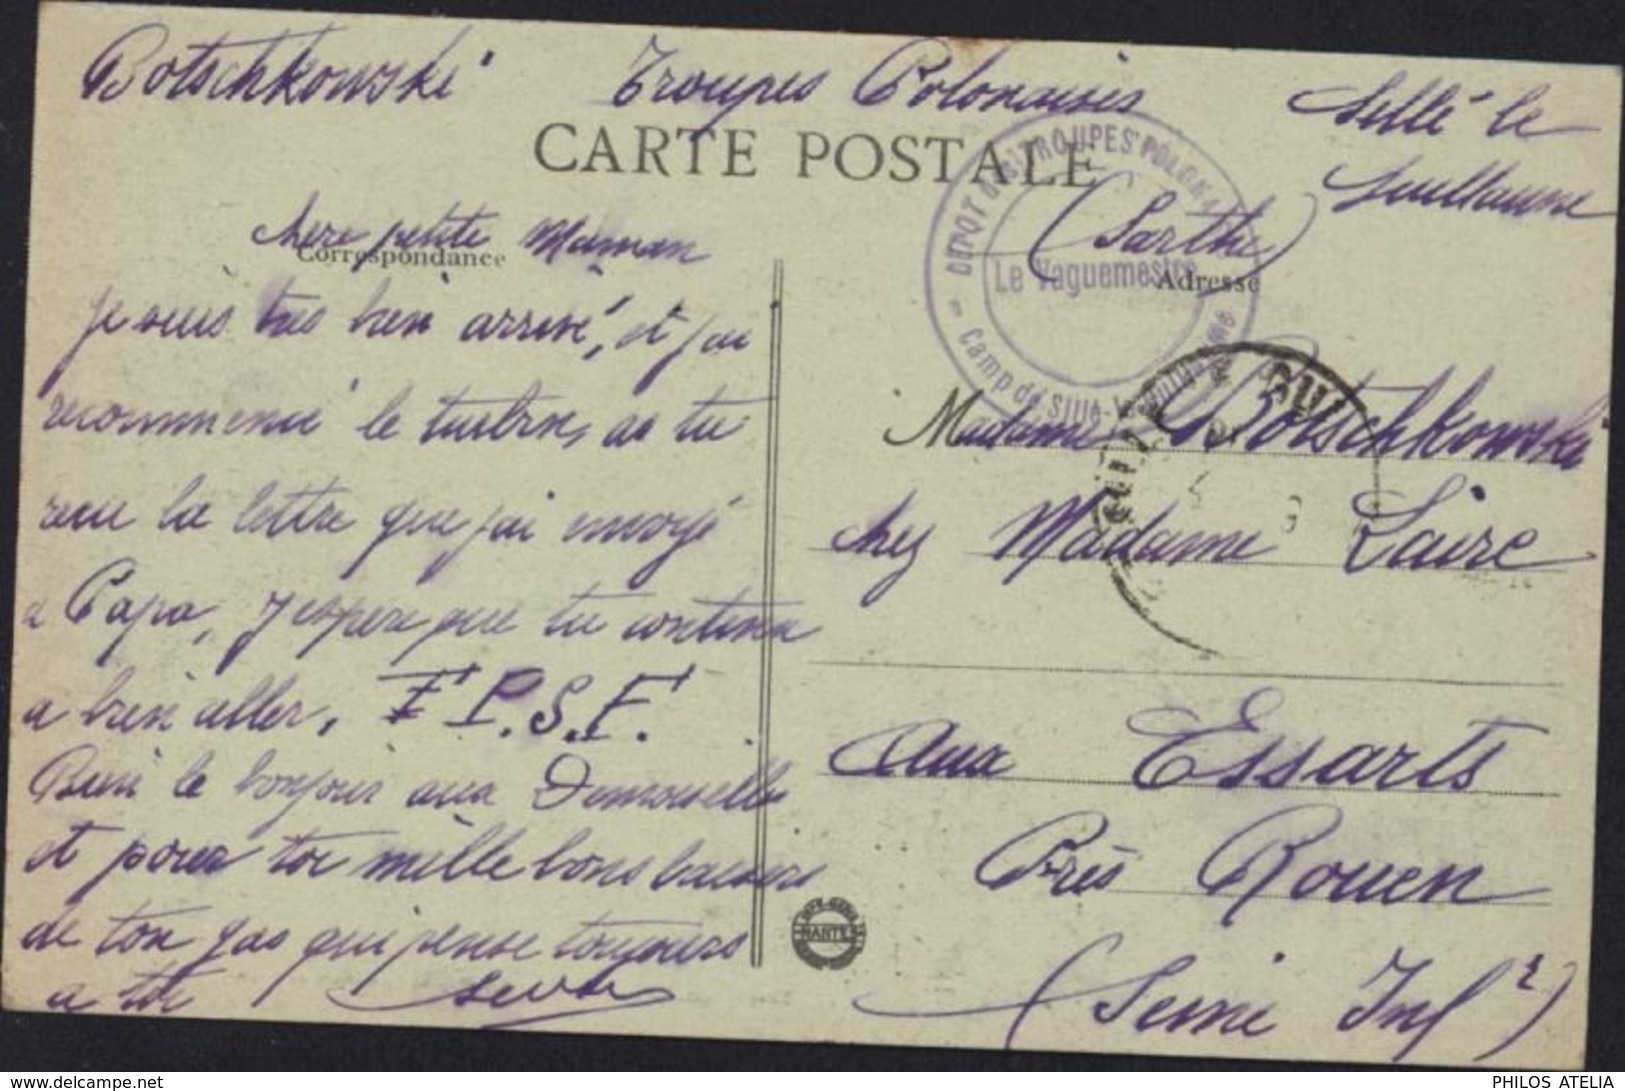 Botschkowski Troupes Polonaises Sillé le
Guillaume
(Sarthe)
CARTE POSTALE
DEPOT DES TROUPES POLONAISES
Le Vaguemestre
Camp de Sillé-le-Guillaume
Correspondance
Adresse
chere petite Maman
je suis tres bien arrivé, et j'ai
recommencé le turbin, as tu
recu la lettre que j'ai envoyé
a Papa, J'espere que tu continu
a bien aller, F P.S.F.
Bien le bonjour aux Demoiselles
et pour toi mille bons baisers
de ton gas qui pense toujours
a toi
Madame Botschkowski
chez Madame Laire
Aux Essarts
Près Rouen
(Seine Infre)
NANTES
PHILOS ATELIA
www.delcampe.net